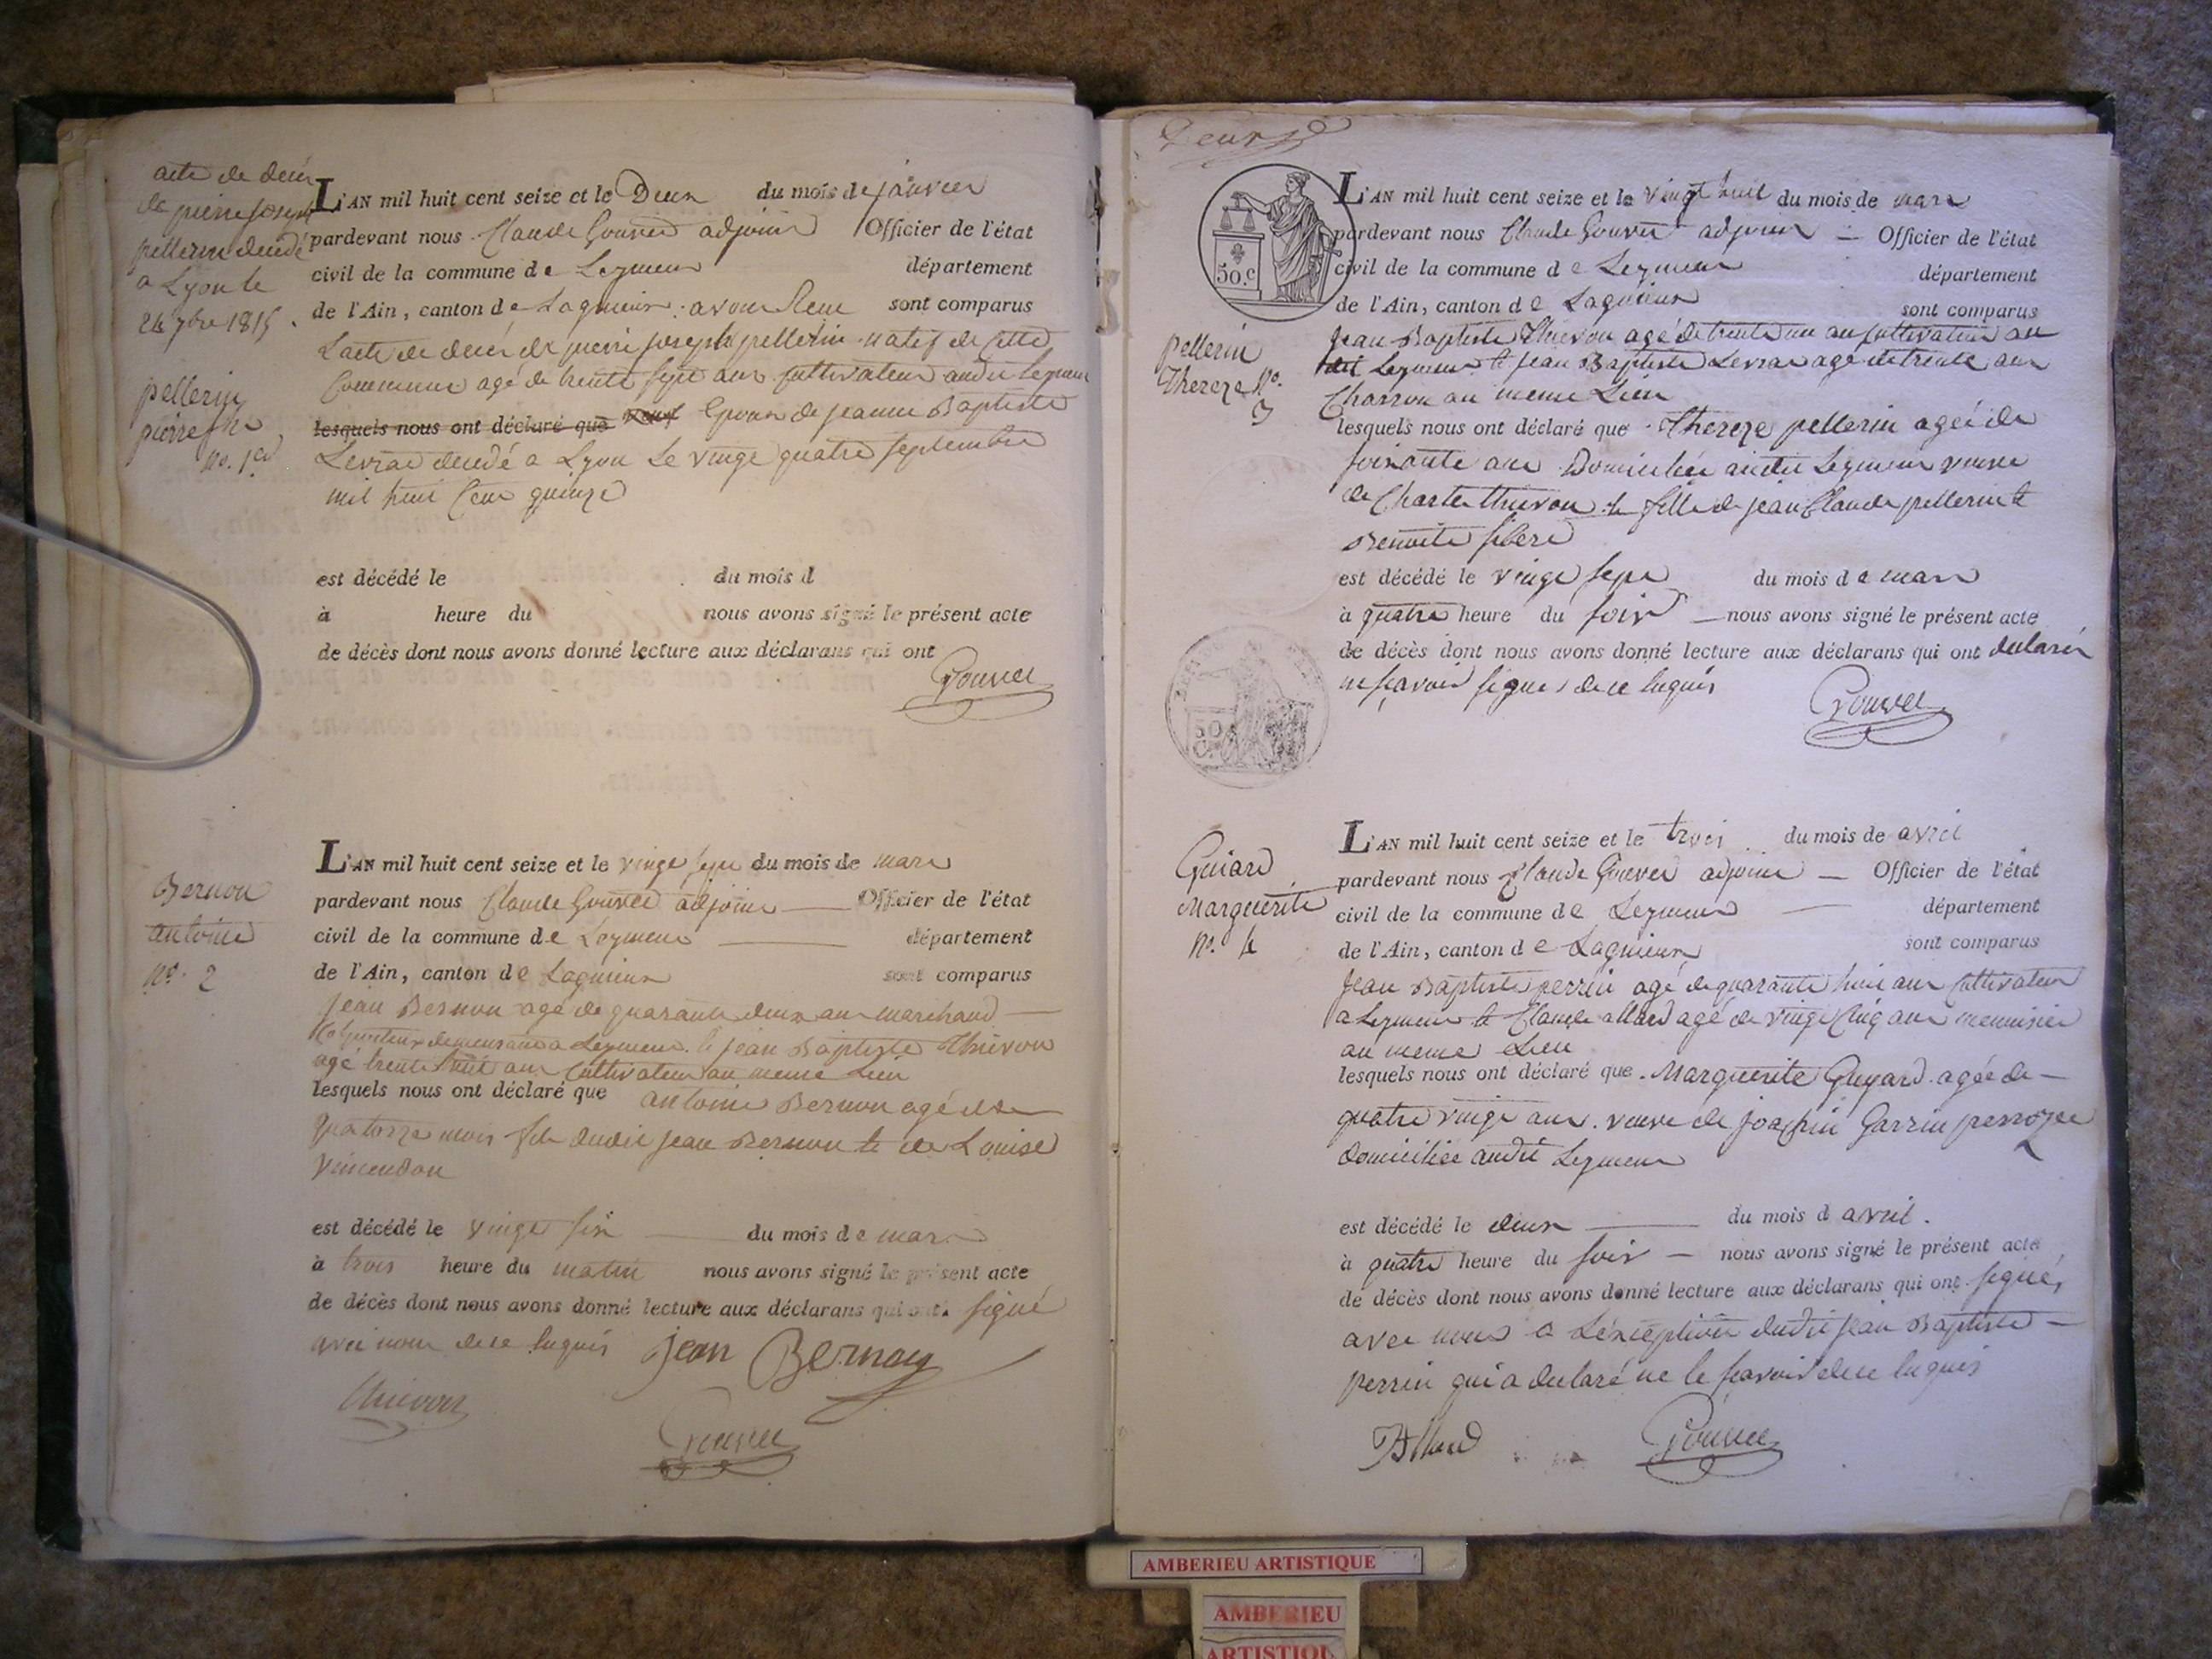 acte de decés
de pierre joseph
pellerin decedé
a Lyon le
24 7bre 1815
pellerin
pierre
No. 1er
L'AN mil huit cent seize et le Deux du mois de janvier
pardevant nous Claude Gouvet adjoint Officier de l'état
civil de la commune de Leymen département
de l'Ain, canton de Lagnieux avons Recu sont comparus
Lacte de decés de pierre joseph pellerin natif de cette
Commune agé de trente sept ans cultivateur audit Leymen
lesquels nous ont déclaré que Epoux de jeanne Baptiste
Levrat decedé a Lyon Le vingt quatre septembre
mil huit Cent quinze
est décédé le du mois d
à heure du nous avons signé le présent acte
de décès dont nous avons donné lecture aux déclarans qui ont
Gouvet
Bernon
antoine
No. 2
L'AN mil huit cent seize et le vingt sept du mois de mars
pardevant nous Claude Gouvet adjoint Officier de l'état
civil de la commune de Leymen département
de l'Ain, canton de Lagnieux sont comparus
jean Bernon agé de quarante deux ans marchand
Colporteur demeurant a Leymen et jean Baptiste Thievon
agé trente huit ans Cultivateur au meme Lieu
lesquels nous ont déclaré que antoine Bernon agé de
quatorze mois fils dudit jean Bernon et de Louise
Vincendon
est décédé le vingt six du mois de mars
à trois heure du matin nous avons signé le présent acte
de décès dont nous avons donné lecture aux déclarans qui ont signé
avec nous de ce Requis jean Bernon
Thievon
Gouvet
Deux
50.c
L'AN mil huit cent seize et le vingt huit du mois de mars
pardevant nous Claude Gouvet adjoint Officier de l'état
civil de la commune de Leymen département
de l'Ain, canton de Lagnieux sont comparus
pellerin
Thereze No.
3
jean Baptiste Thievon agé de trente un an Cultivateur au
dit Leymen et jean Baptiste Levrat agé de trente ans
Charron au meme Lieu
lesquels nous ont déclaré que Thereze pellerin agée de
soixante ans Domiciliée audit Leymen veuve
de Charle Thievon et fille de jean Claude pellerin et
Benoite
est décédé le vingt sept du mois de mars
à quatre heure du soir nous avons signé le présent acte
de décès dont nous avons donné lecture aux déclarans qui ont declarés
ne sçavoir signer de ce Requis
50
C.
Gouvet
Guiard
Marguerite
No. 4
L'AN mil huit cent seize et le trois du mois de avril
pardevant nous Claude Gouvet adjoint Officier de l'état
civil de la commune de Leymen département
de l'Ain, canton de Lagnieux sont comparus
jean Baptiste perrin agé de quarante huit ans Cultivateur
a Leymen et Claude allard agé de vingt Cinq ans menuisier
au meme Lieu
lesquels nous ont déclaré que Marguerite Guyard agée de
quatre vingt ans veuve de joachin Garrin perrozet
domiciliée audit Leymen
est décédé le deux du mois d avril.
à quatre heure du soir nous avons signé le présent acte
de décès dont nous avons donné lecture aux déclarans qui ont signés
avec nous a Lexception dudit jean Baptiste
perrin qui a declaré ne le sçavoir de ce Requis
Allard
Gouvet
AMBERIEU ARTISTIQUE
AMBERIEU
ARTISTIQU